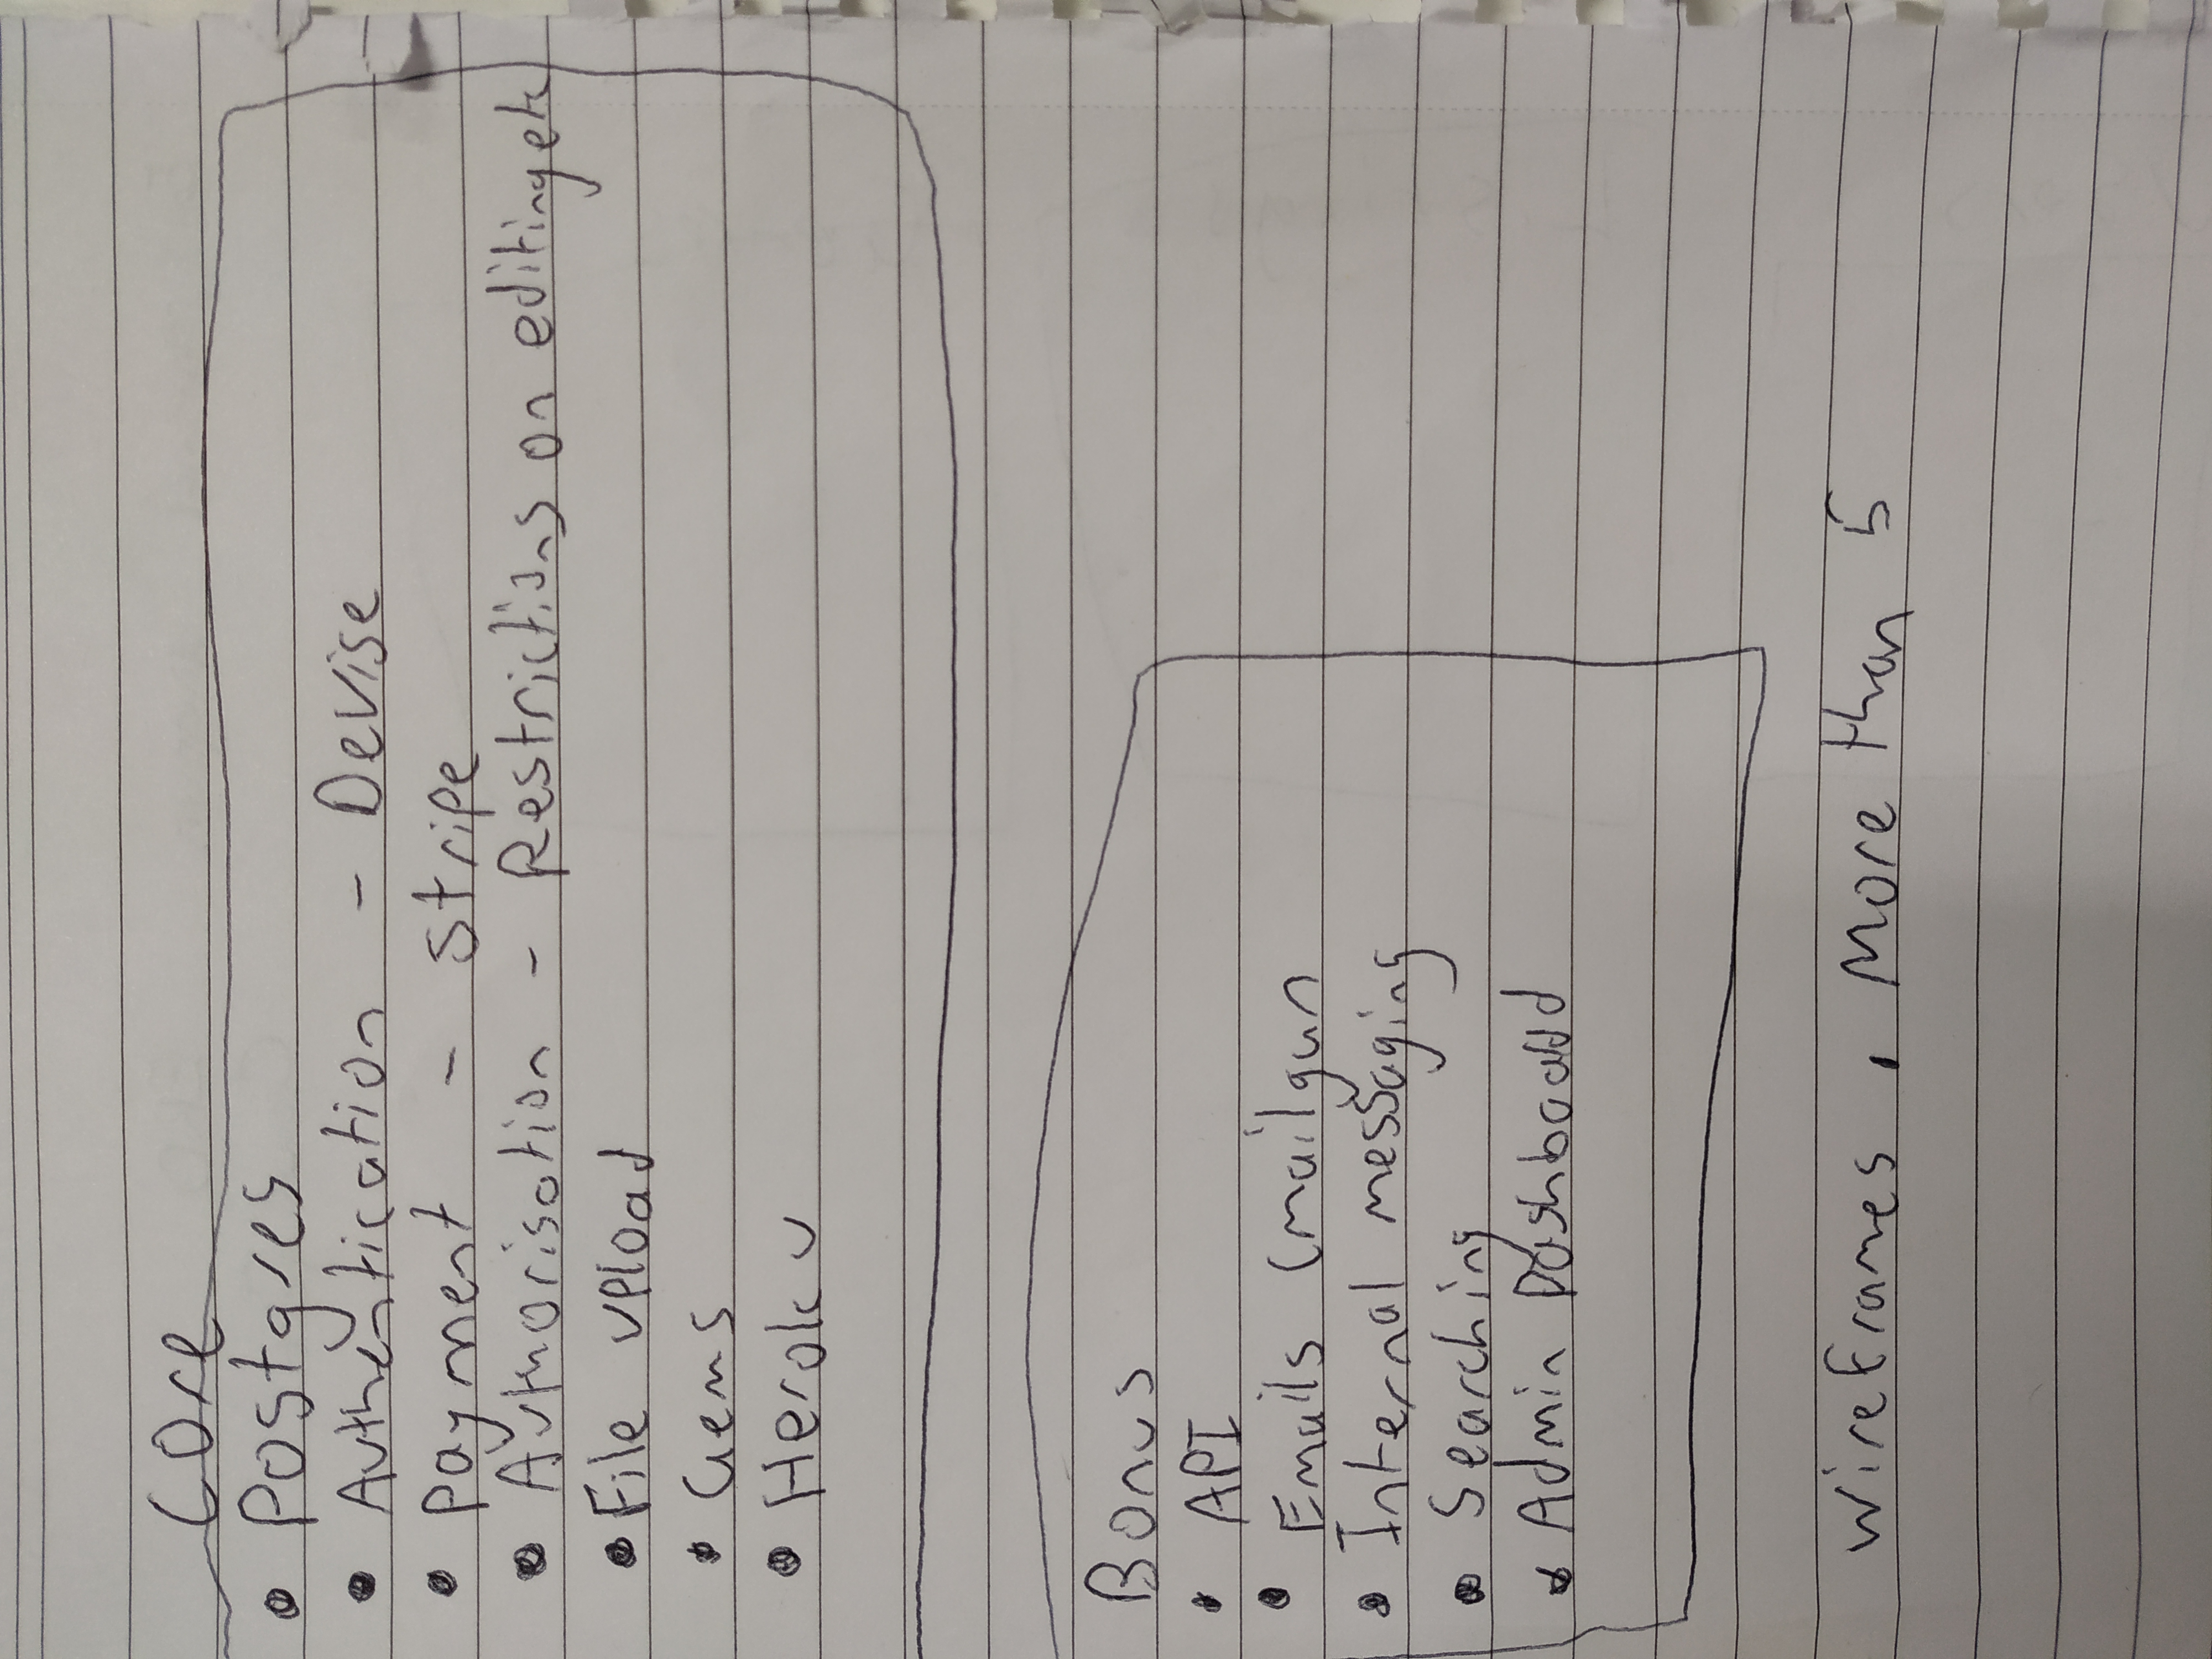 Core
• Postgres
• Authentication - Devise
• Payment - Stripe
• Authorisation - Restrictions on editing etc
• File upload
• Gems
• Heroku
Bonus
• API
• Emails (mailgun
• Internal messaging
• Searching
• Admin Dashboard
Wireframes, More than 5